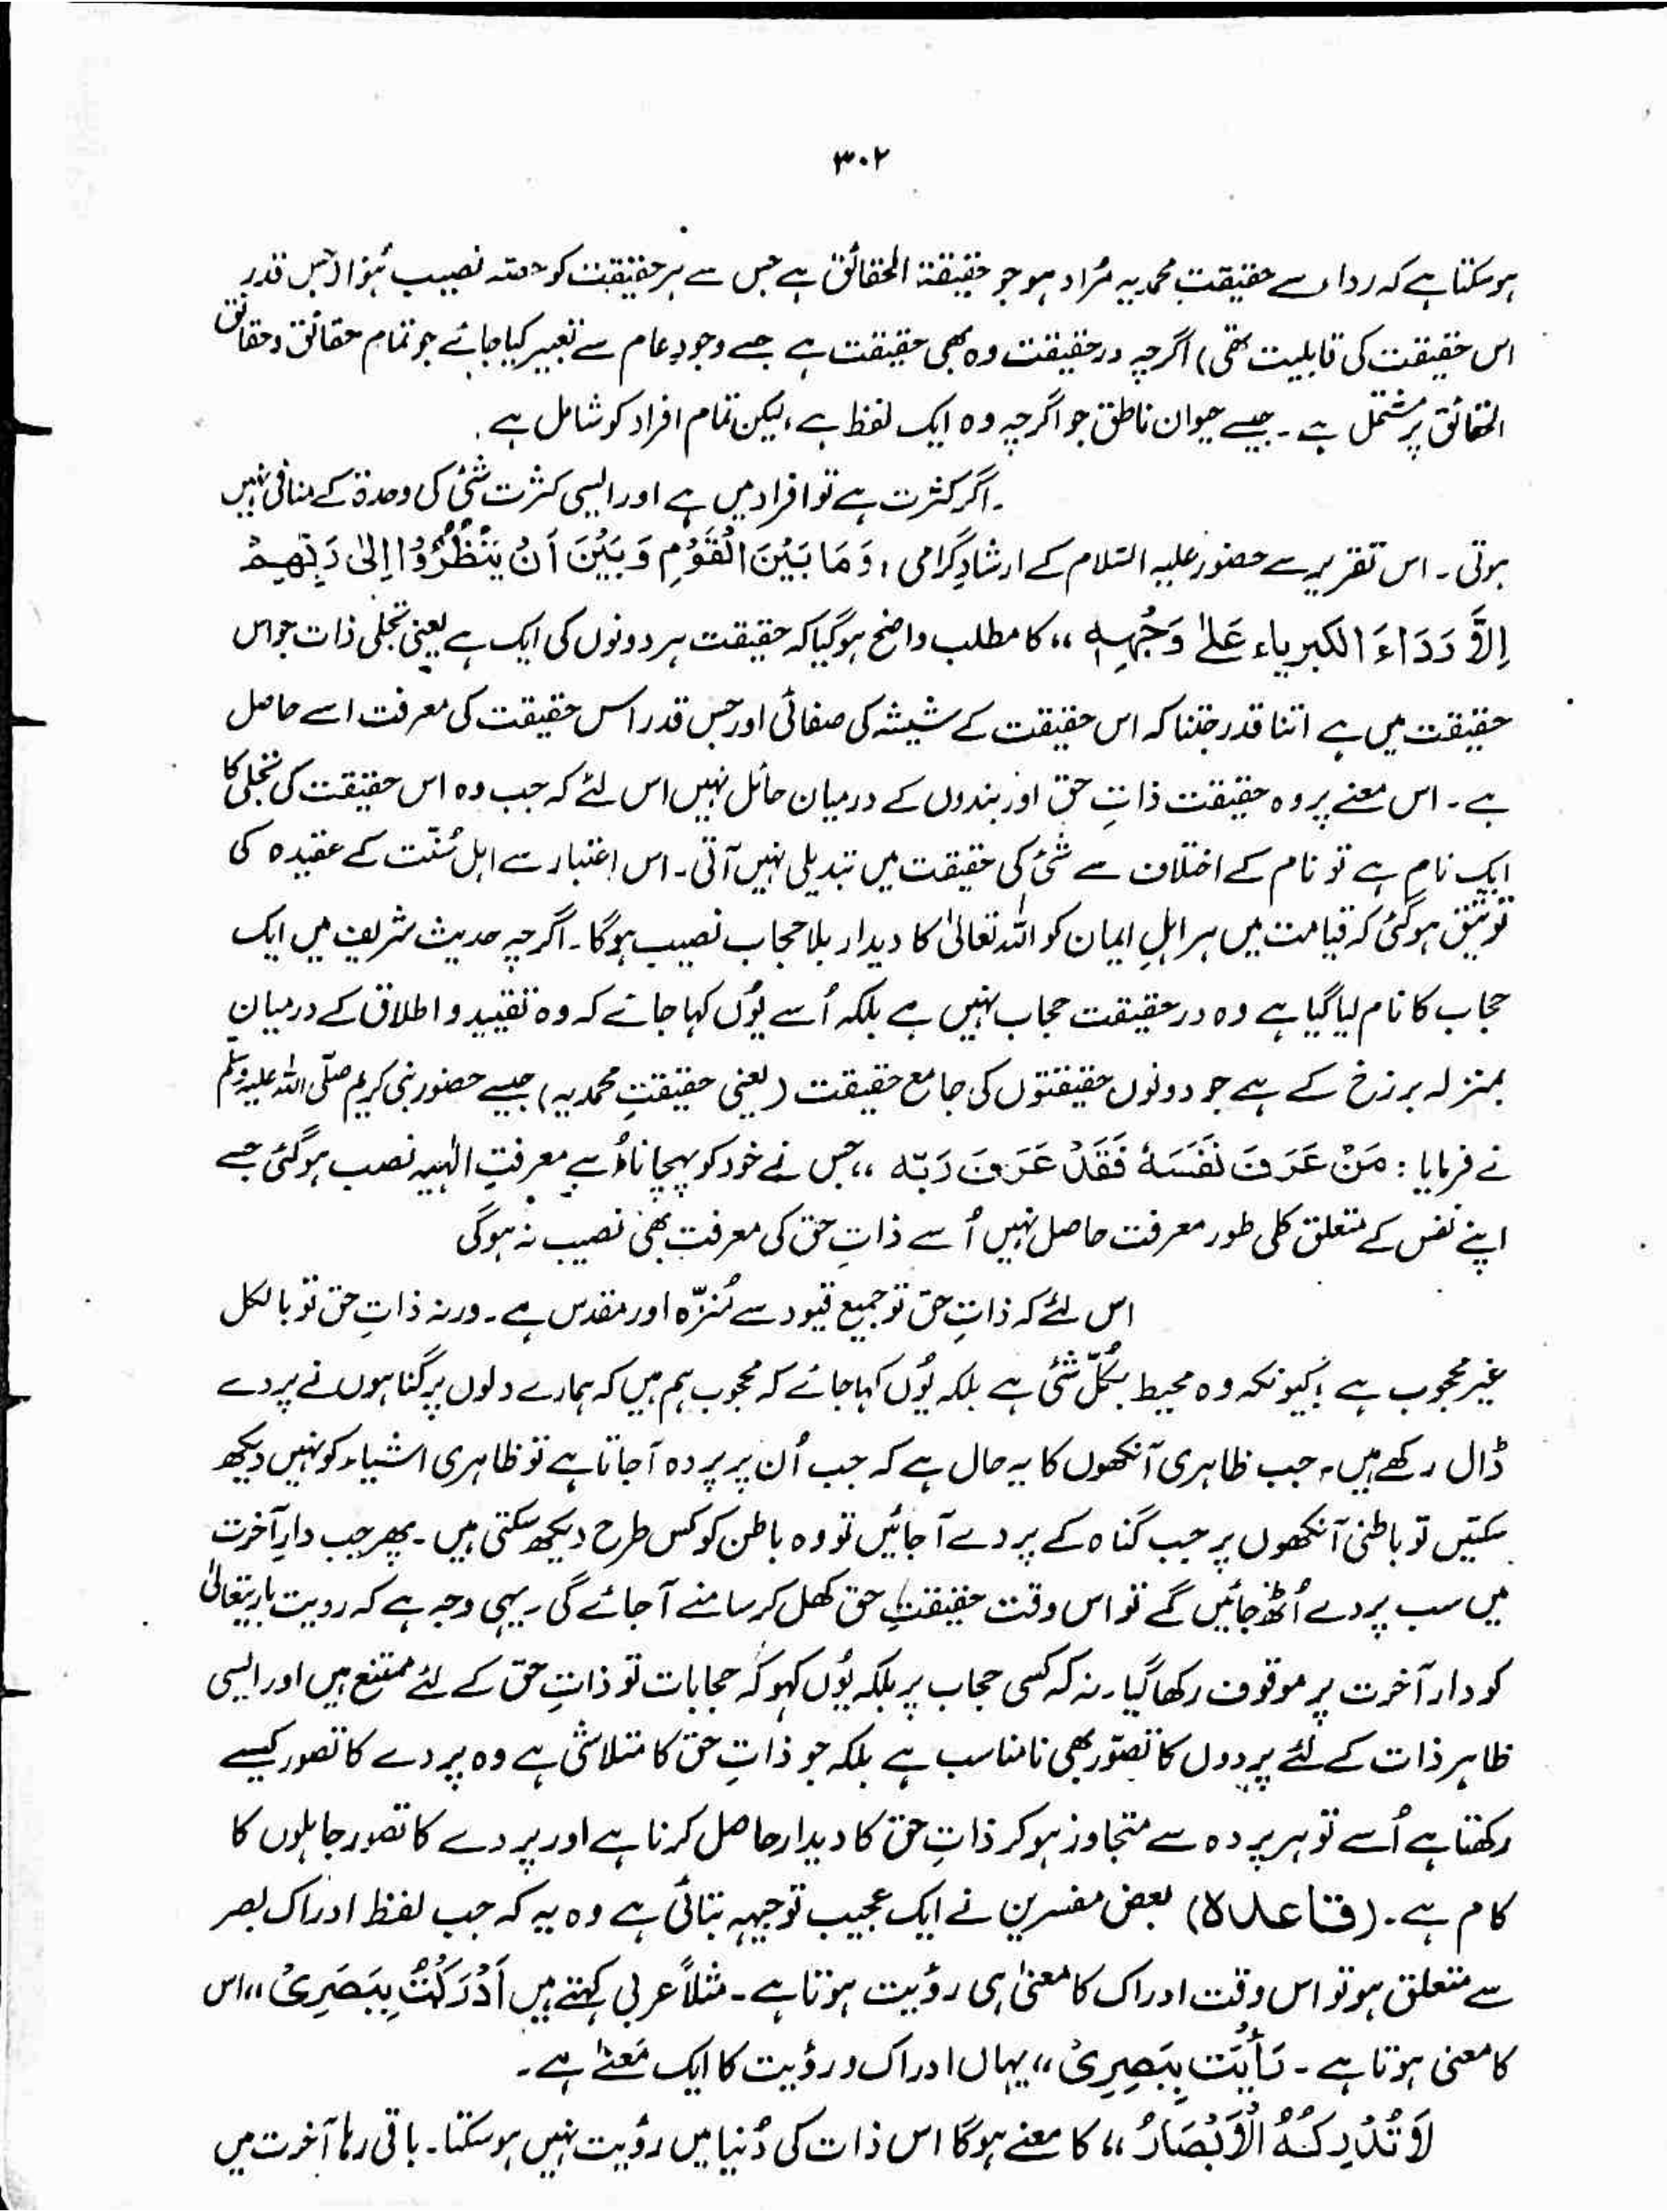 ۳۰۲
ہوسکتا ہے کہ رداء سے حقیقتِ محمدیہ مُراد ہو جو حقیقۃ الحقائق ہے جس سے ہر حقیقت کو حصّہ نصیب ہُوا (جس قدر
اس حقیقت کی قابلیت تھی) اگرچہ درحقیقت وہ بھی حقیقت ہے جسے وجودِ عام سے تعبیر کیا جائے جو تمام حقائق و حقائق
الحقائق پر مشتمل ہے۔ جیسے حیوان ناطق جو اگرچہ وہ ایک لفظ ہے، لیکن تمام افراد کو شامل ہے۔
اگر کثرت ہے تو افراد میں ہے اور ایسی کثرت شئ کی وحدۃ کے منافی نہیں
ہوتی۔ اس تقریر سے حضور علیہ السّلام کے ارشادِ گرامی، وَمَا بَیْنَ الْقَوْمِ وَبَیْنَ اَنْ یَنْظُرُوْا اِلیٰ رَبِّھِمْ
اِلاَّ رَدَاءَ الکبریاء عَلےٰ وَجْہِہٖ ،، کا مطلب واضح ہوگیا کہ حقیقت ہر دونوں کی ایک ہے یعنی تجلی ذات جو اس
حقیقت میں ہے اتنا قدر جتنا کہ اس حقیقت کے شیشہ کی صفائی اور جس قدر اس حقیقت کی معرفت اسے حاصل
ہے۔ اس معنے پر وہ حقیقت ذاتِ حق اور بندوں کے درمیان حائل نہیں اس لئے کہ جب وہ اس حقیقت کی تجلی کا
ایک نام ہے تو نام کے اختلاف سے شئ کی حقیقت میں تبدیلی نہیں آتی۔ اس اعتبار سے اہل سُنّت کے عقیدہ کی
توثیق ہوگئی کہ قیامت میں ہر اہلِ ایمان کو اللہ تعالیٰ کا دیدار بلا حجاب نصیب ہوگا۔ اگرچہ حدیث شریف میں ایک
حجاب کا نام لیا گیا ہے وہ درحقیقت حجاب نہیں ہے بلکہ اُسے یوُں کہا جائے کہ وہ تقیید و اطلاق کے درمیان
بمنزلہ برزخ کے ہے جو دونوں حقیقتوں کی جامع حقیقت (یعنی حقیقتِ محمدیہ) جیسے حضور نبی کریم صلّی اللہ علیہ وسلّم
نے فرمایا : مَنْ عَرَفَ نَفَسَہٗ فَقَدْ عَرَفَ رَبّہ ،، جس نے خود کو پہچانا اُسے معرفتِ الٰہیہ نصب ہوگئی جسے
اپنے نفس کے متعلق کلی طور معرفت حاصل نہیں اُسے ذاتِ حق کی معرفت بھی نصیب نہ ہوگی
اس لئے کہ ذاتِ حق تو جمیع قیود سے مُنزّہ اور مقدس ہے۔ ورنہ ذاتِ حق تو بالکل
غیر محجوب ہے ؛ کیونکہ وہ محیط بکُلّ شئ ہے بلکہ یوُں کہا جائے کہ محجوب ہم ہیں کہ ہمارے دلوں پر گناہوں نے پردے
ڈال رکھے ہیں، جب ظاہری آنکھوں کا یہ حال ہے کہ جب اُن پر پردہ آجاتا ہے تو ظاہری اشیاء کو نہیں دیکھ
سکتیں تو باطنی آنکھوں پر جب گناہ کے پردے آجائیں تو وہ باطن کو کس طرح دیکھ سکتی ہیں۔ پھر جب دارِ آخرت
میں سب پردے اُٹھ جائیں گے تو اس وقت حقیقتِ حق کھل کر سامنے آجائے گی۔ یہی وجہ ہے کہ رویت باریتعالیٰ
کو دار آخرت پر موقوف رکھا گیا۔ نہ کہ کسی حجاب پر بلکہ یوُں کہو کہ حجابات تو ذاتِ حقّ کے لئے ممتنع ہیں اور ایسی
ظاہر ذات کے لئے پردوں کا تصوّر بھی نامناسب ہے بلکہ جو ذاتِ حق کا متلاشی ہے وہ پردے کا تصور کیسے
رکھتا ہے اُسے تو ہر پردہ سے متجاوز ہوکر ذاتِ حق کا دیدار حاصل کرنا ہے اور پردے کا تصور جاہلوں کا
کام ہے۔ (قاعدہ) بعض مفسرین نے ایک عجیب توجیہہ بتائی ہے وہ یہ کہ جب لفظ ادراک بصر
سے متعلق ہو تو اس وقت ادراک کا معنیٰ ہی رؤیت ہوتا ہے۔ مثلاً عربی کہتے ہیں اَدْرَکْتُ بِبَصَرِیْ ،، اس
کا معنی ہوتا ہے۔ رَأَیْتُ بِبَصِرِیْ ،، یہاں ادراک و رؤیت کا ایک مَعنےٰ ہے۔
لَا تُدْرِکُہُ الْاَبْصَارُ ،، کا معنے ہوگا اس ذات کی دُنیا میں رؤیت نہیں ہوسکتا۔ باقی رہا آخرت میں